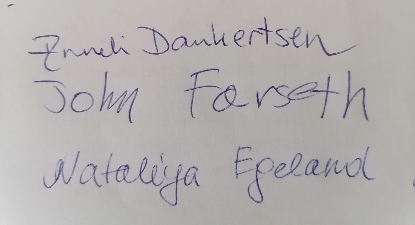 Anneli Dankertsen
John Farseth
Nataliya Egeland